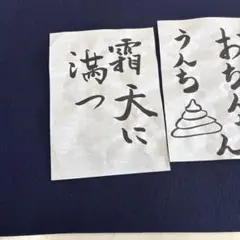 霜天に
満つ
おちんちん
うんち